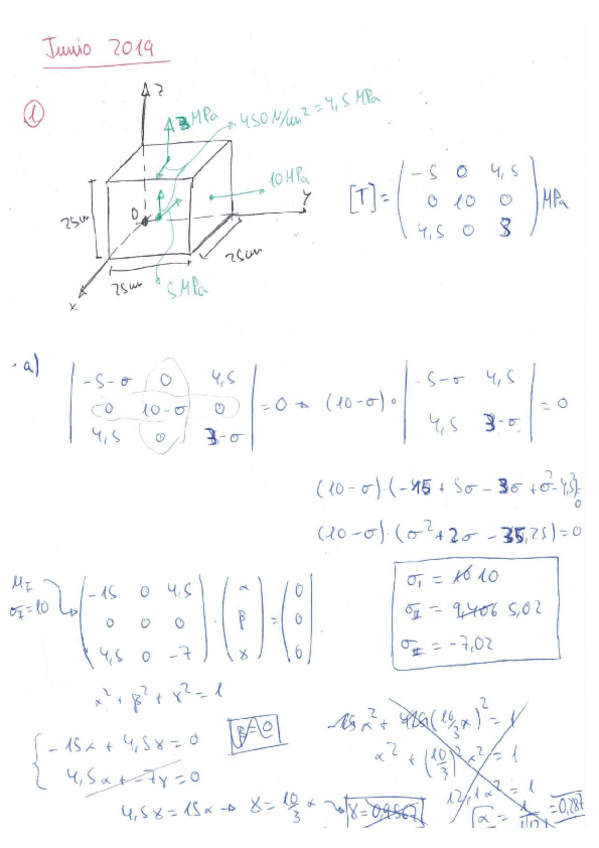 Junio 2019
①
z
3 MPa
450 N/cm² = 4,5 MPa
10 MPa
y
25cm
0
25cm
25cm
x
5 MPa
[T] = ( -5 0 4,5
0 10 0
4,5 0 3 ) MPa
· a)
| -5-σ 0 4,5
0 10-σ 0
4,5 0 3-σ | = 0 → (10-σ)· | -5-σ 4,5
4,5 3-σ | = 0
(10-σ)·(-15 + 5σ - 3σ + σ² - 4,5²) = 0
(10-σ)·(σ² + 2σ - 35,25) = 0
σI = 10
σII = 5,02
σIII = -7,02
μI
σI = 10
( -15 0 4,5
0 0 0
4,5 0 -7 ) · ( α
β
γ ) = ( 0
0
0 )
α² + β² + γ² = 1
β = 0
{ -15α + 4,5γ = 0
4,5α + -7γ = 0
4,5γ = 15α → γ = 10/3 α → γ = 0,9567
α² + (10/3)² α² = 1
12,1α² = 1
= 0,287